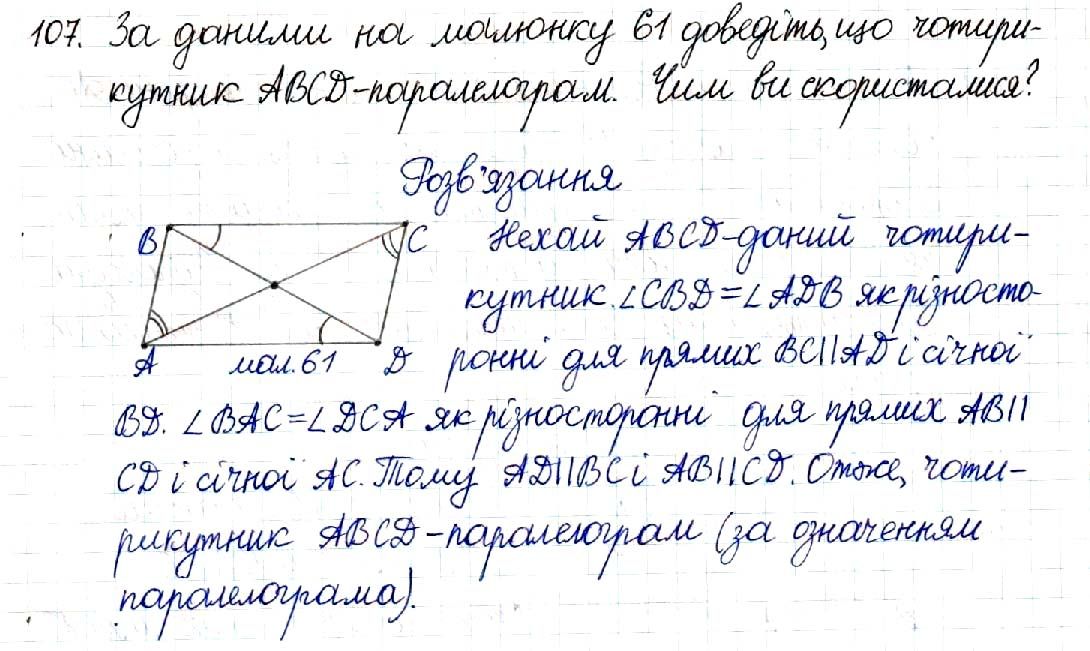 107. За даними на малюнку 61 доведіть, що чотири-
кутник ABCD-паралелограм. Чим ви скористалися?
Розв'язання
B
C
A
D
мал. 61
Нехай ABCD-даний чотири-
кутник. ∠CBD=∠ADB як різносто-
ронні для прямих BC||AD і січної
BD. ∠BAC=∠DCA як різносторонні для прямих AB||
CD і січної AC. Тому AD||BC і AB||CD. Отже, чоти-
рикутник ABCD-паралелограм (за означенням
паралелограма).